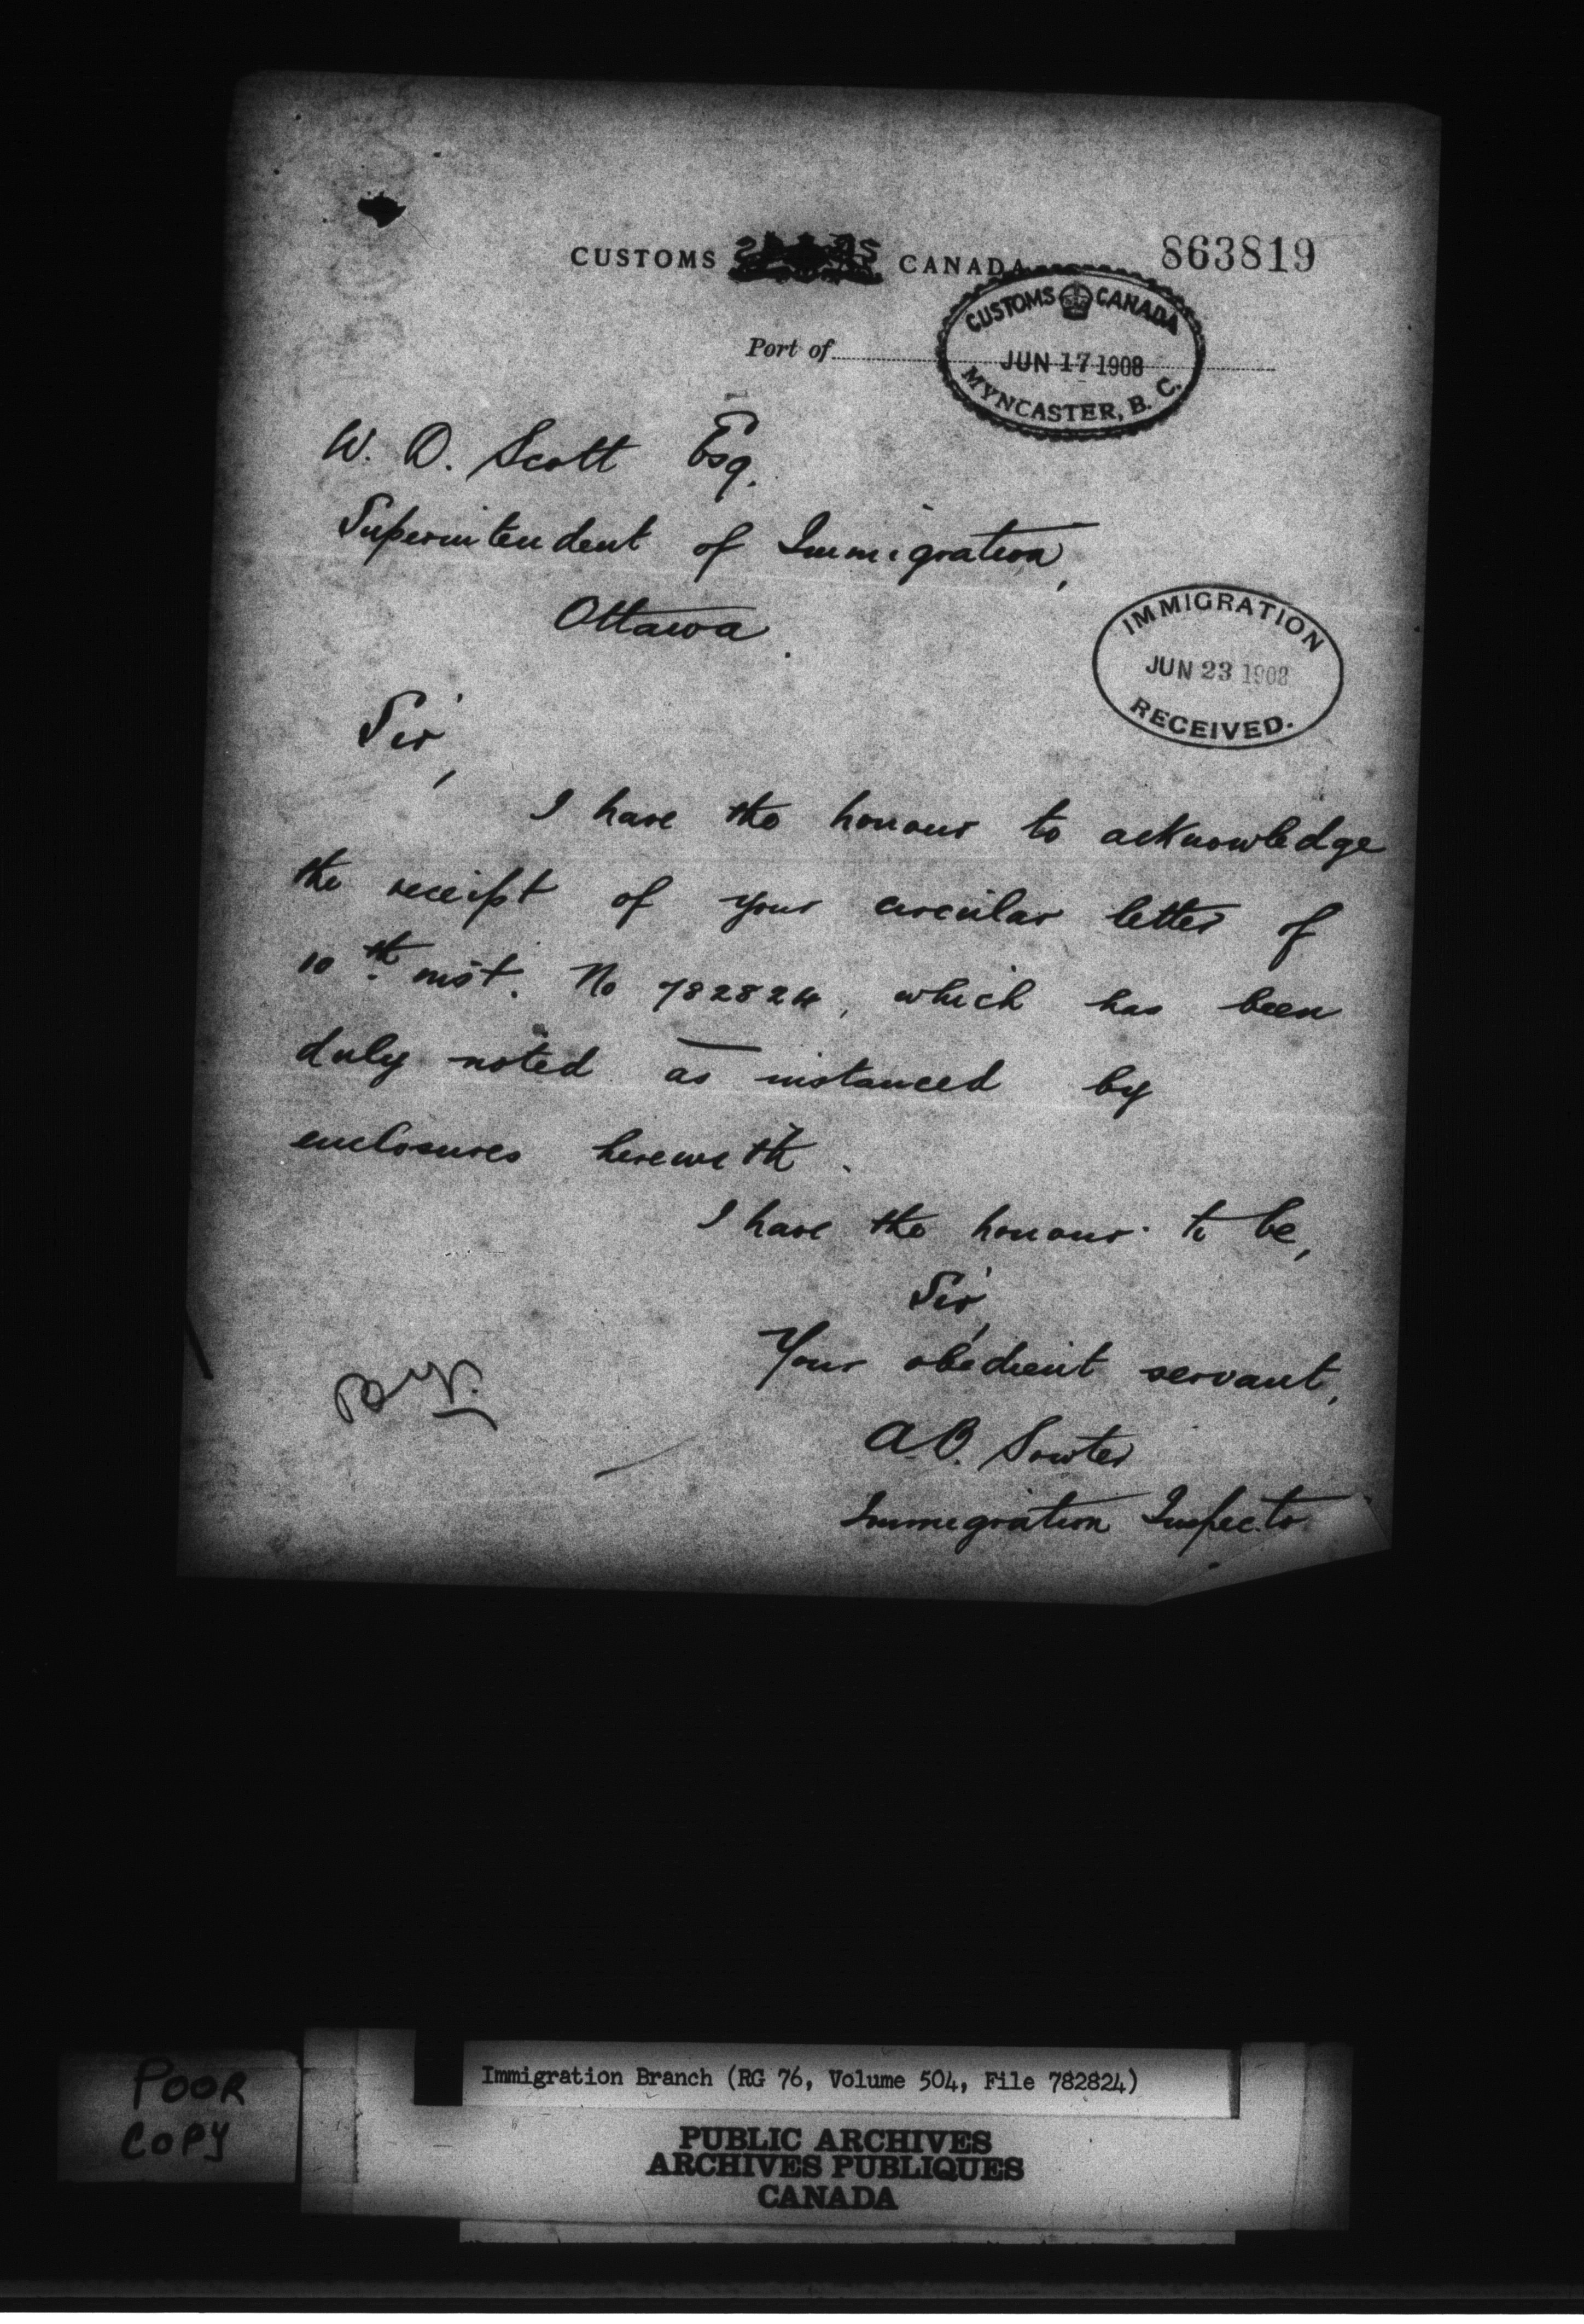 CUSTOMS CANADA
863819
Port of
CUSTOMS CANADA
JUN 17 1908
MYNCASTER, B. C.
W. D. Scott Esq.
Superintendent of Immigration,
Ottawa.
IMMIGRATION
JUN 23 1908
RECEIVED.
Sir,
I have the honour to acknowledge
the receipt of your circular letter of
10th inst. No 782824, which has been
duly noted as instanced by
enclosures herewith.
I have the honour to be,
Sir,
Your obedient servant,
A.B. Sowter
Immigration Inspector
POOR
COPY
Immigration Branch (RG 76, Volume 504, File 782824)
PUBLIC ARCHIVES
ARCHIVES PUBLIQUES
CANADA